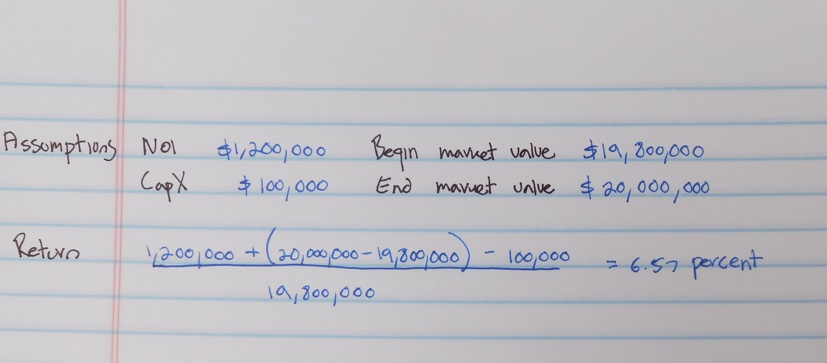 Assumptions NOI $1,200,000 Begin market value $19,800,000
CapX $100,000 End market value $20,000,000
Return 1,200,000 + (20,000,000 - 19,800,000) - 100,000 = 6.57 percent
19,800,000